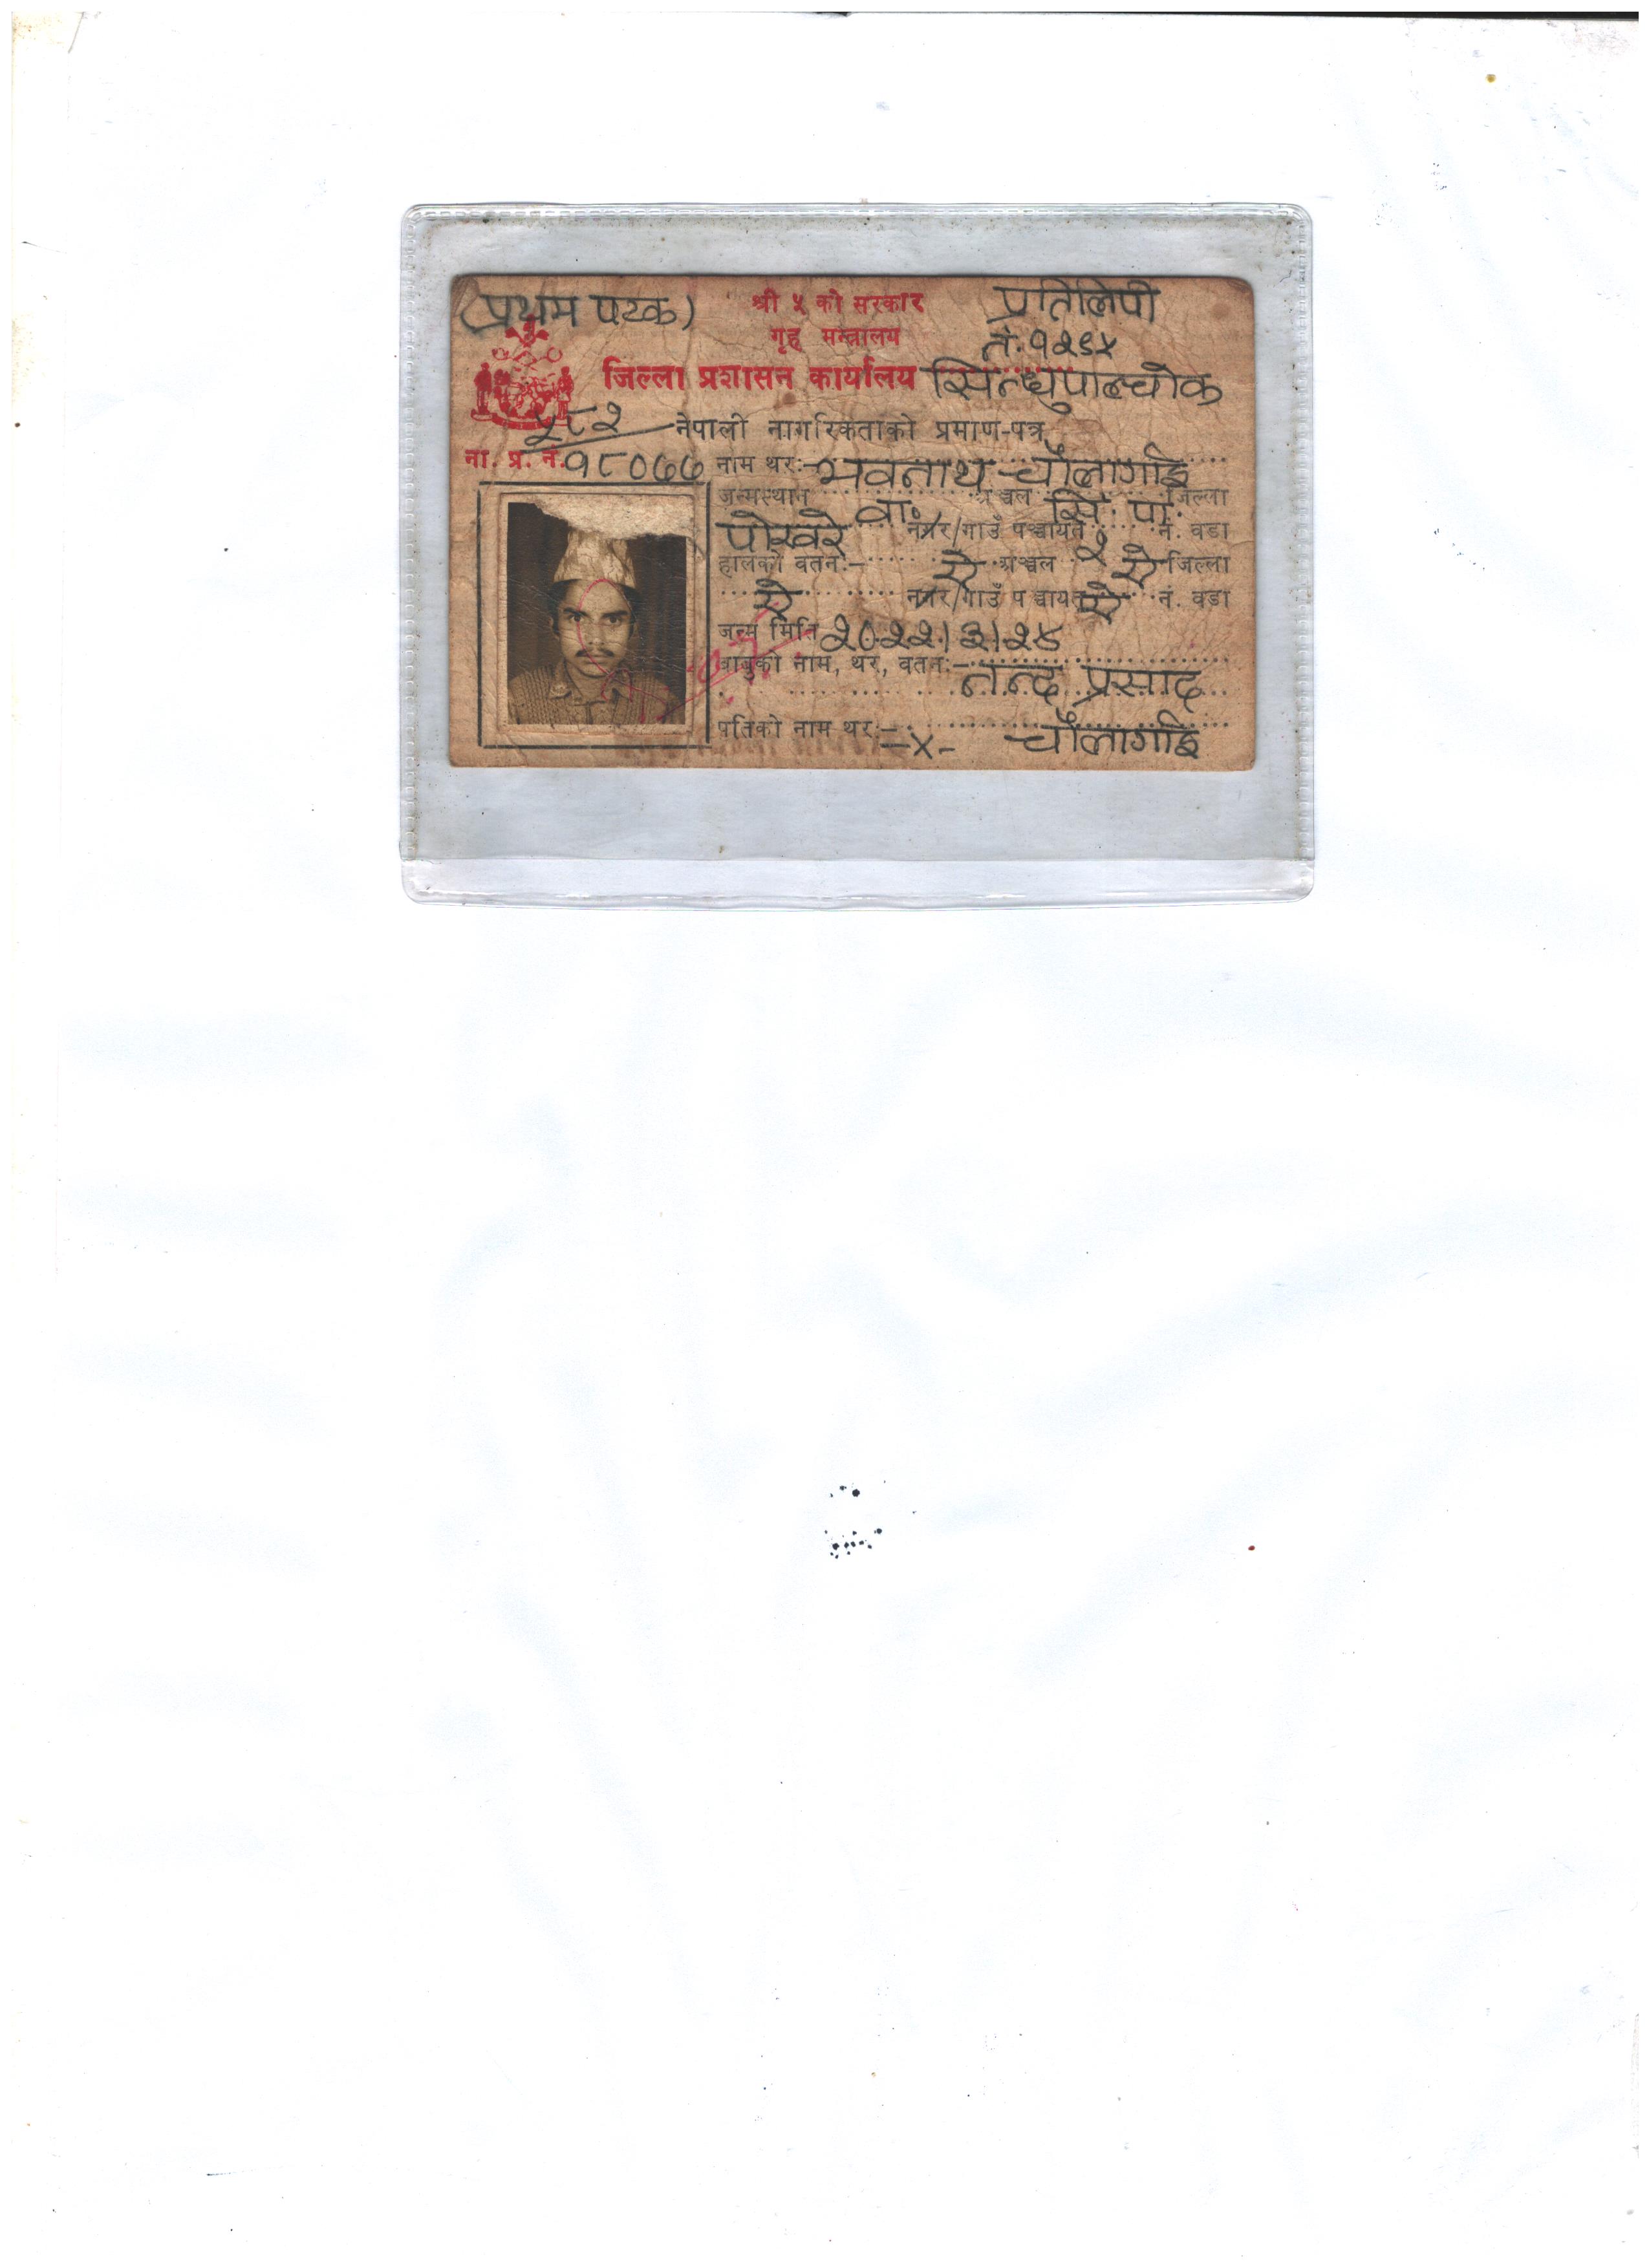 (प्रथम पटक) श्री ५ को सरकार प्रतिलिपी
गृह मन्त्रालय नं. १२९५
जिल्ला प्रशासन कार्यालय सिन्धुपाल्चोक
५८२ नेपाली नागरिकताको प्रमाण-पत्र
ना. प्र. नं. १८०७७ नाम थर:- भवनाथ चौंलागाईं
जन्मस्थान वा. अञ्चल सि. पा. जिल्ला
पोखरे नगर/गाउँ पञ्चायत २ नं. वडा
हालको वतन:- ऐ अञ्चल ऐ जिल्ला
ऐ नगर/गाउँ पञ्चायत ऐ नं. वडा
जन्म मिति २०२२।३।२५
बाबुको नाम, थर, वतन:- नन्द प्रसाद
पतिको नाम थर:- -x- चौंलागाईं